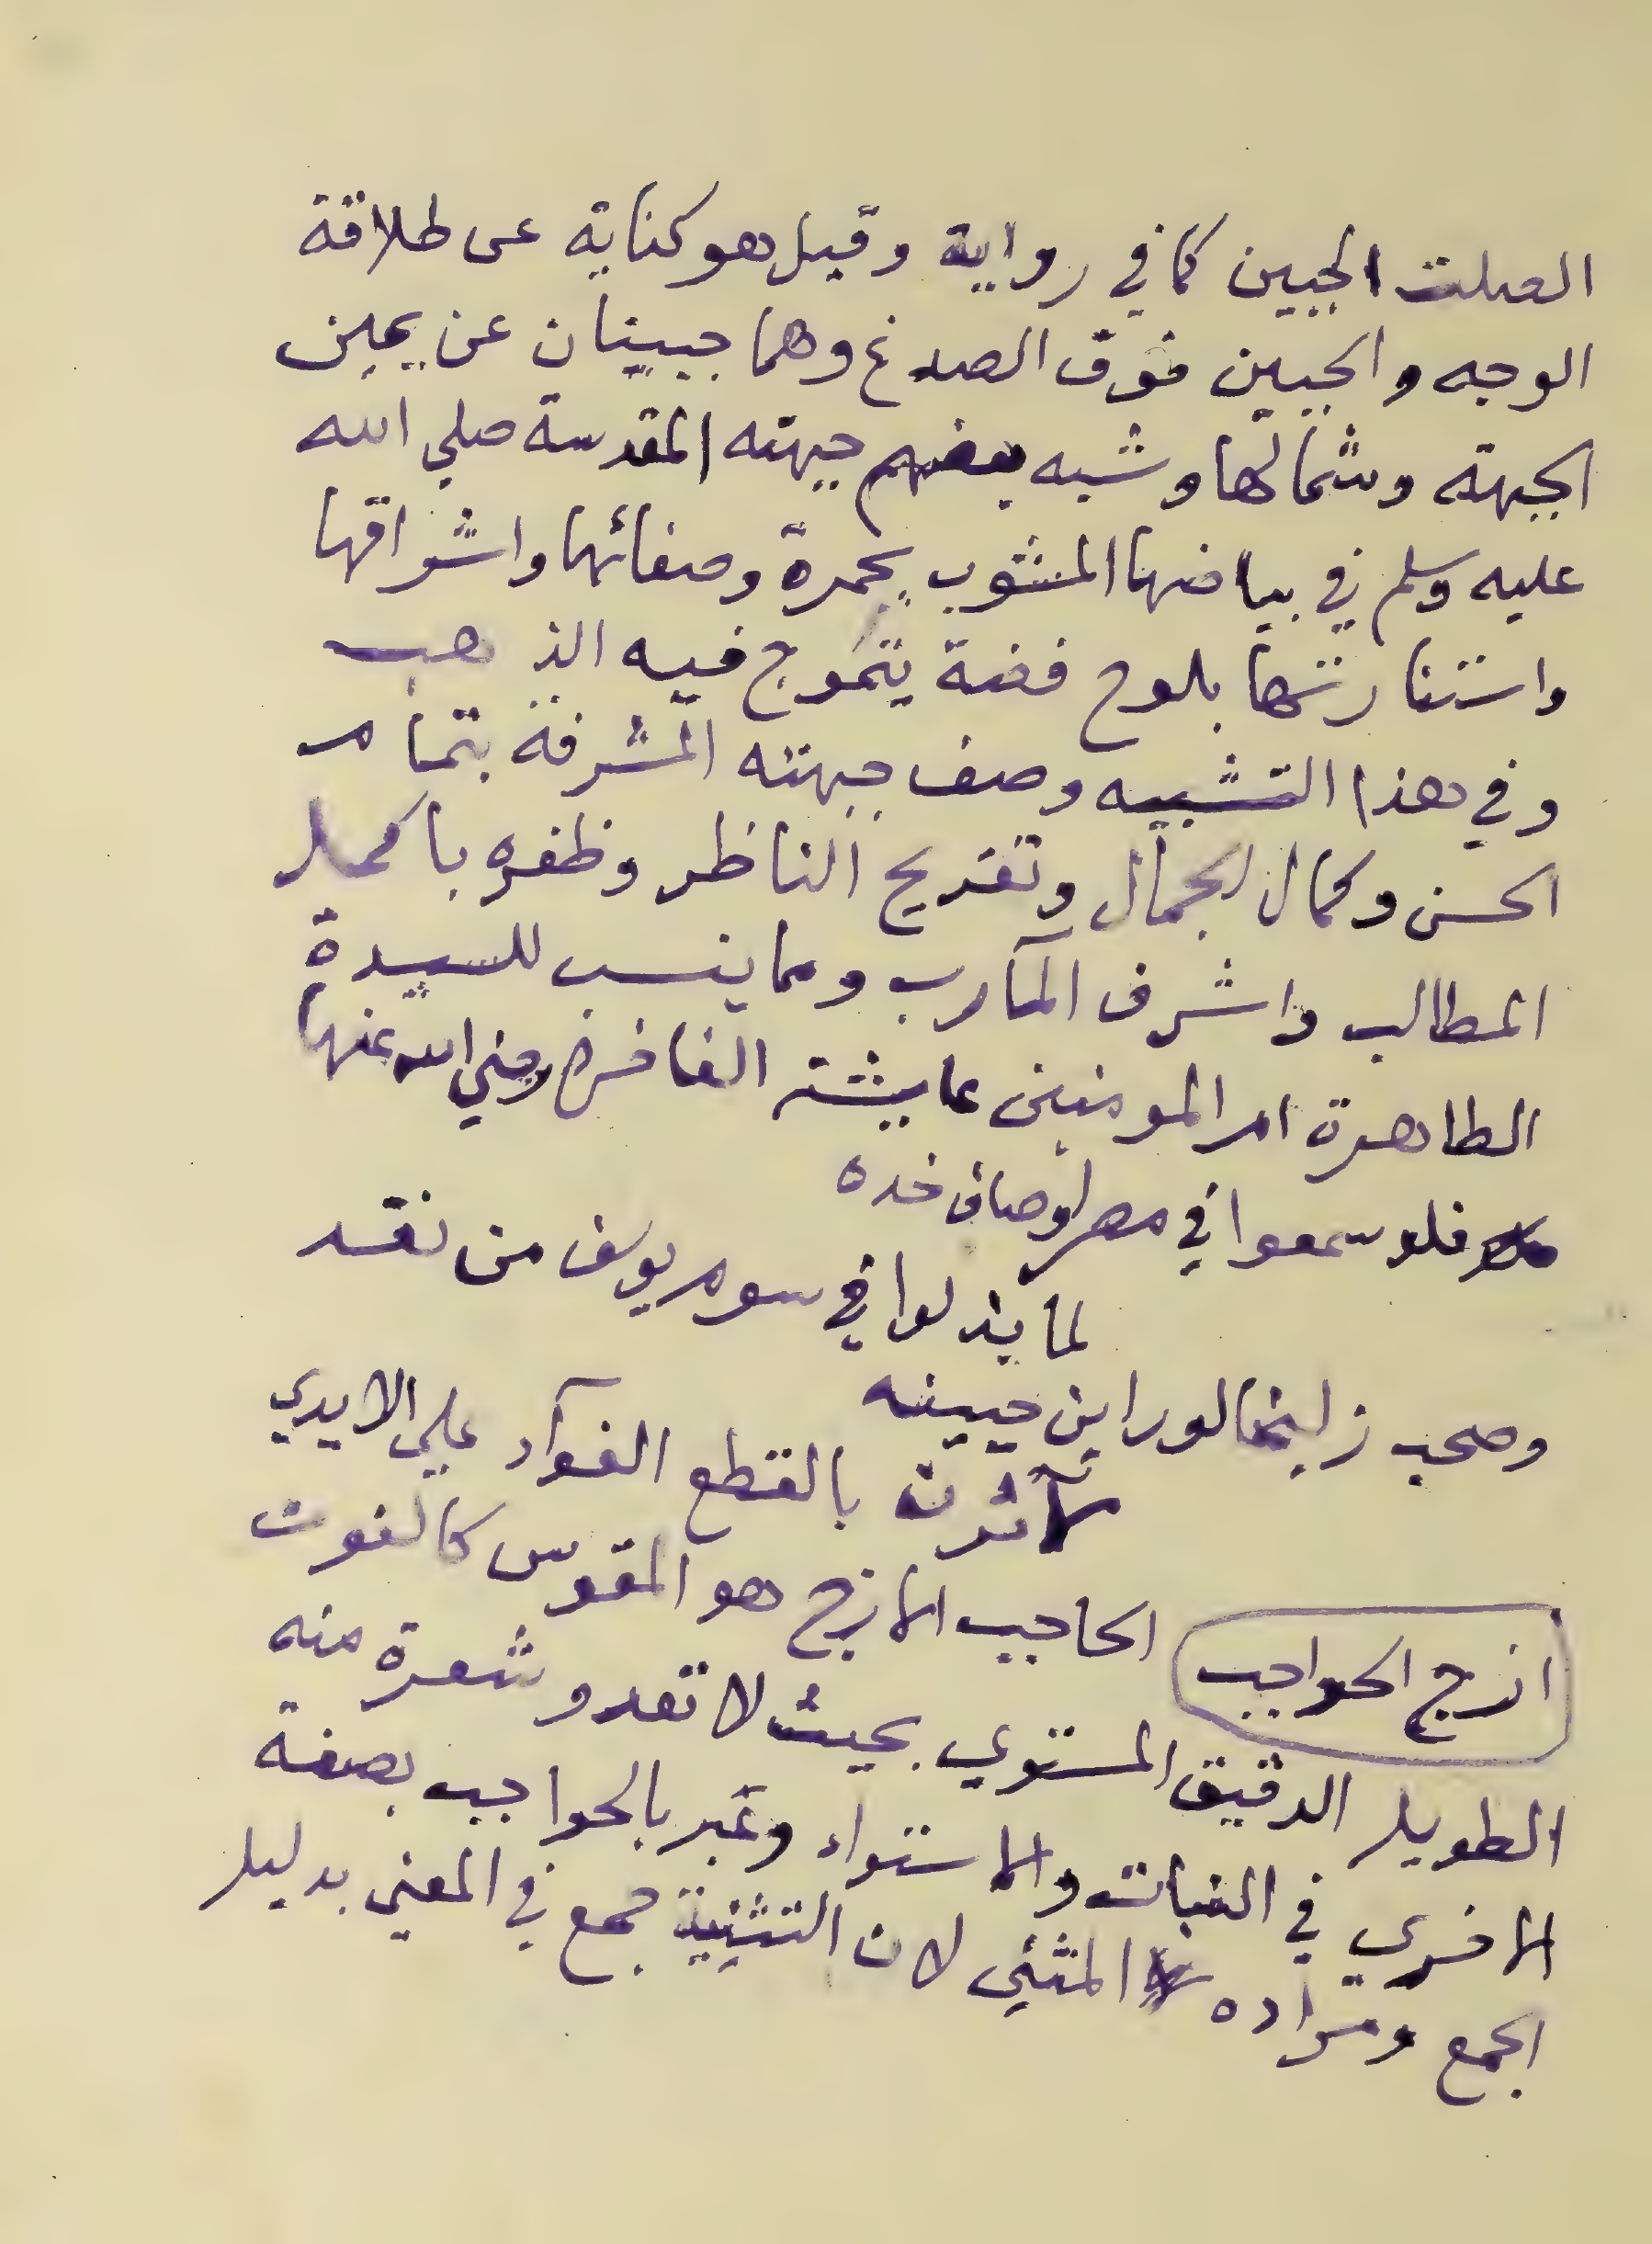 الصلت الجبين كما في رواية وقيل هو كناية عن طلاقة
الوجه والجبين فوق الصدغ وهما جبينان عن يمين
الجبهة وشمالها وشبه بعضهم جبهته المقدسة صلي الله
عليه وسلم في بياضها المشوب بحمرة وصفائها واشراقها
واستنارتها بلوح فضة يتموج فيه الذهب
وفي هذا التشبيه وصف جبهته المشرفة بتمام
الحسن وكمال الجمال وتفريح الناظر وظفره باكمل
المطالب واشرف المآرب ومما ينسب للسيدة
الطاهرة ام المومنين عايشة الفاخرة رضي الله عنها
فلو سمعوا في مصر اوصاف خده
لما بذلوا في سوم يوسف من نقد
وصحب زليخا لو راين جبينه
لآثرن بالقطع الفوآد علي الايدي
ازج الحواجب الحاجب الازج هو المقوس كالنون
الطويل الدقيق المستوي بحيث لا تعدو شعرة منه
الاخري في النبات والاستواء وعبر بالحواجب بصفة
الجمع ومراده المثني لان التثنية جمع في المعني بدليل